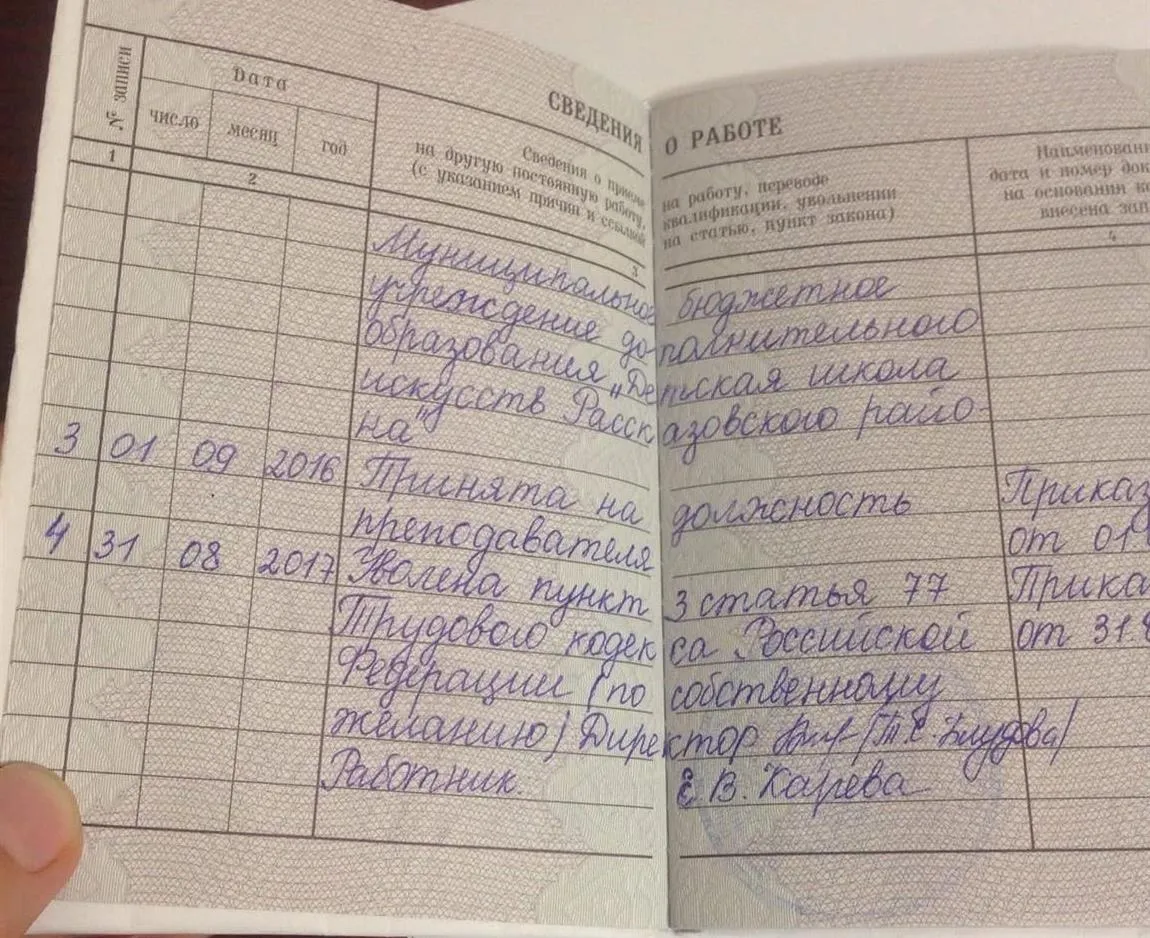 СВЕДЕНИЯ О РАБОТЕ
№ записи
Дата
число
месяц
год
Сведения о приеме на работу, переводе
на другую постоянную работу, квалификации, увольнении
(с указанием причин и ссылкой на статью, пункт закона)
Наименовани
дата и номер док
на основании ко
внесена зап
1
2
3
4
Муниципальное бюджетное
учреждение дополнительного
образования „Детская школа
искусств Рассказовского райо-
на"
3 01 09 2016 Принята на должность Приказ
преподавателя от 01
4 31 08 2017 Уволена пункт 3 статья 77 Прика
Трудового кодекса Российской от 31.
Федерации (по собственному
желанию) Директор /Т.Е. Блудова/
Работник. Е. В. Карева